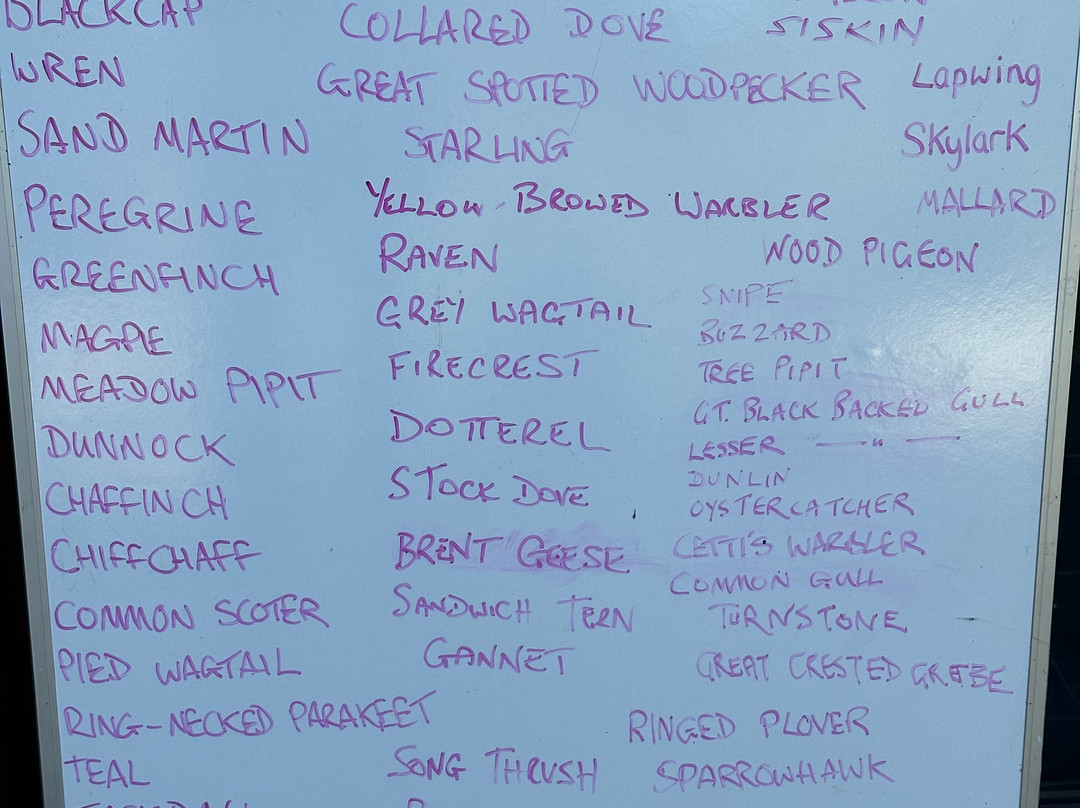 BLACKCAP
WREN
SAND MARTIN
PEREGRINE
GREENFINCH
MAGPIE
MEADOW PIPIT
DUNNOCK
CHAFFINCH
CHIFFCHAFF
COMMON SCOTER
PIED WAGTAIL
RING-NECKED PARAKEET
TEAL
COLLARED DOVE
GREAT SPOTTED WOODPECKER
STARLING
YELLOW-BROWED WARBLER
RAVEN
GREY WAGTAIL
FIRECREST
DOTTEREL
STOCK DOVE
BRENT GEESE
SANDWICH TERN
GANNET
SONG THRUSH
SISKIN
Lapwing
Skylark
MALLARD
WOOD PIGEON
SNIPE
BUZZARD
TREE PIPIT
GT. BLACK BACKED GULL
LESSER — " —
DUNLIN
OYSTERCATCHER
CETTI'S WARBLER
COMMON GULL
TURNSTONE
GREAT CRESTED GREBE
RINGED PLOVER
SPARROWHAWK